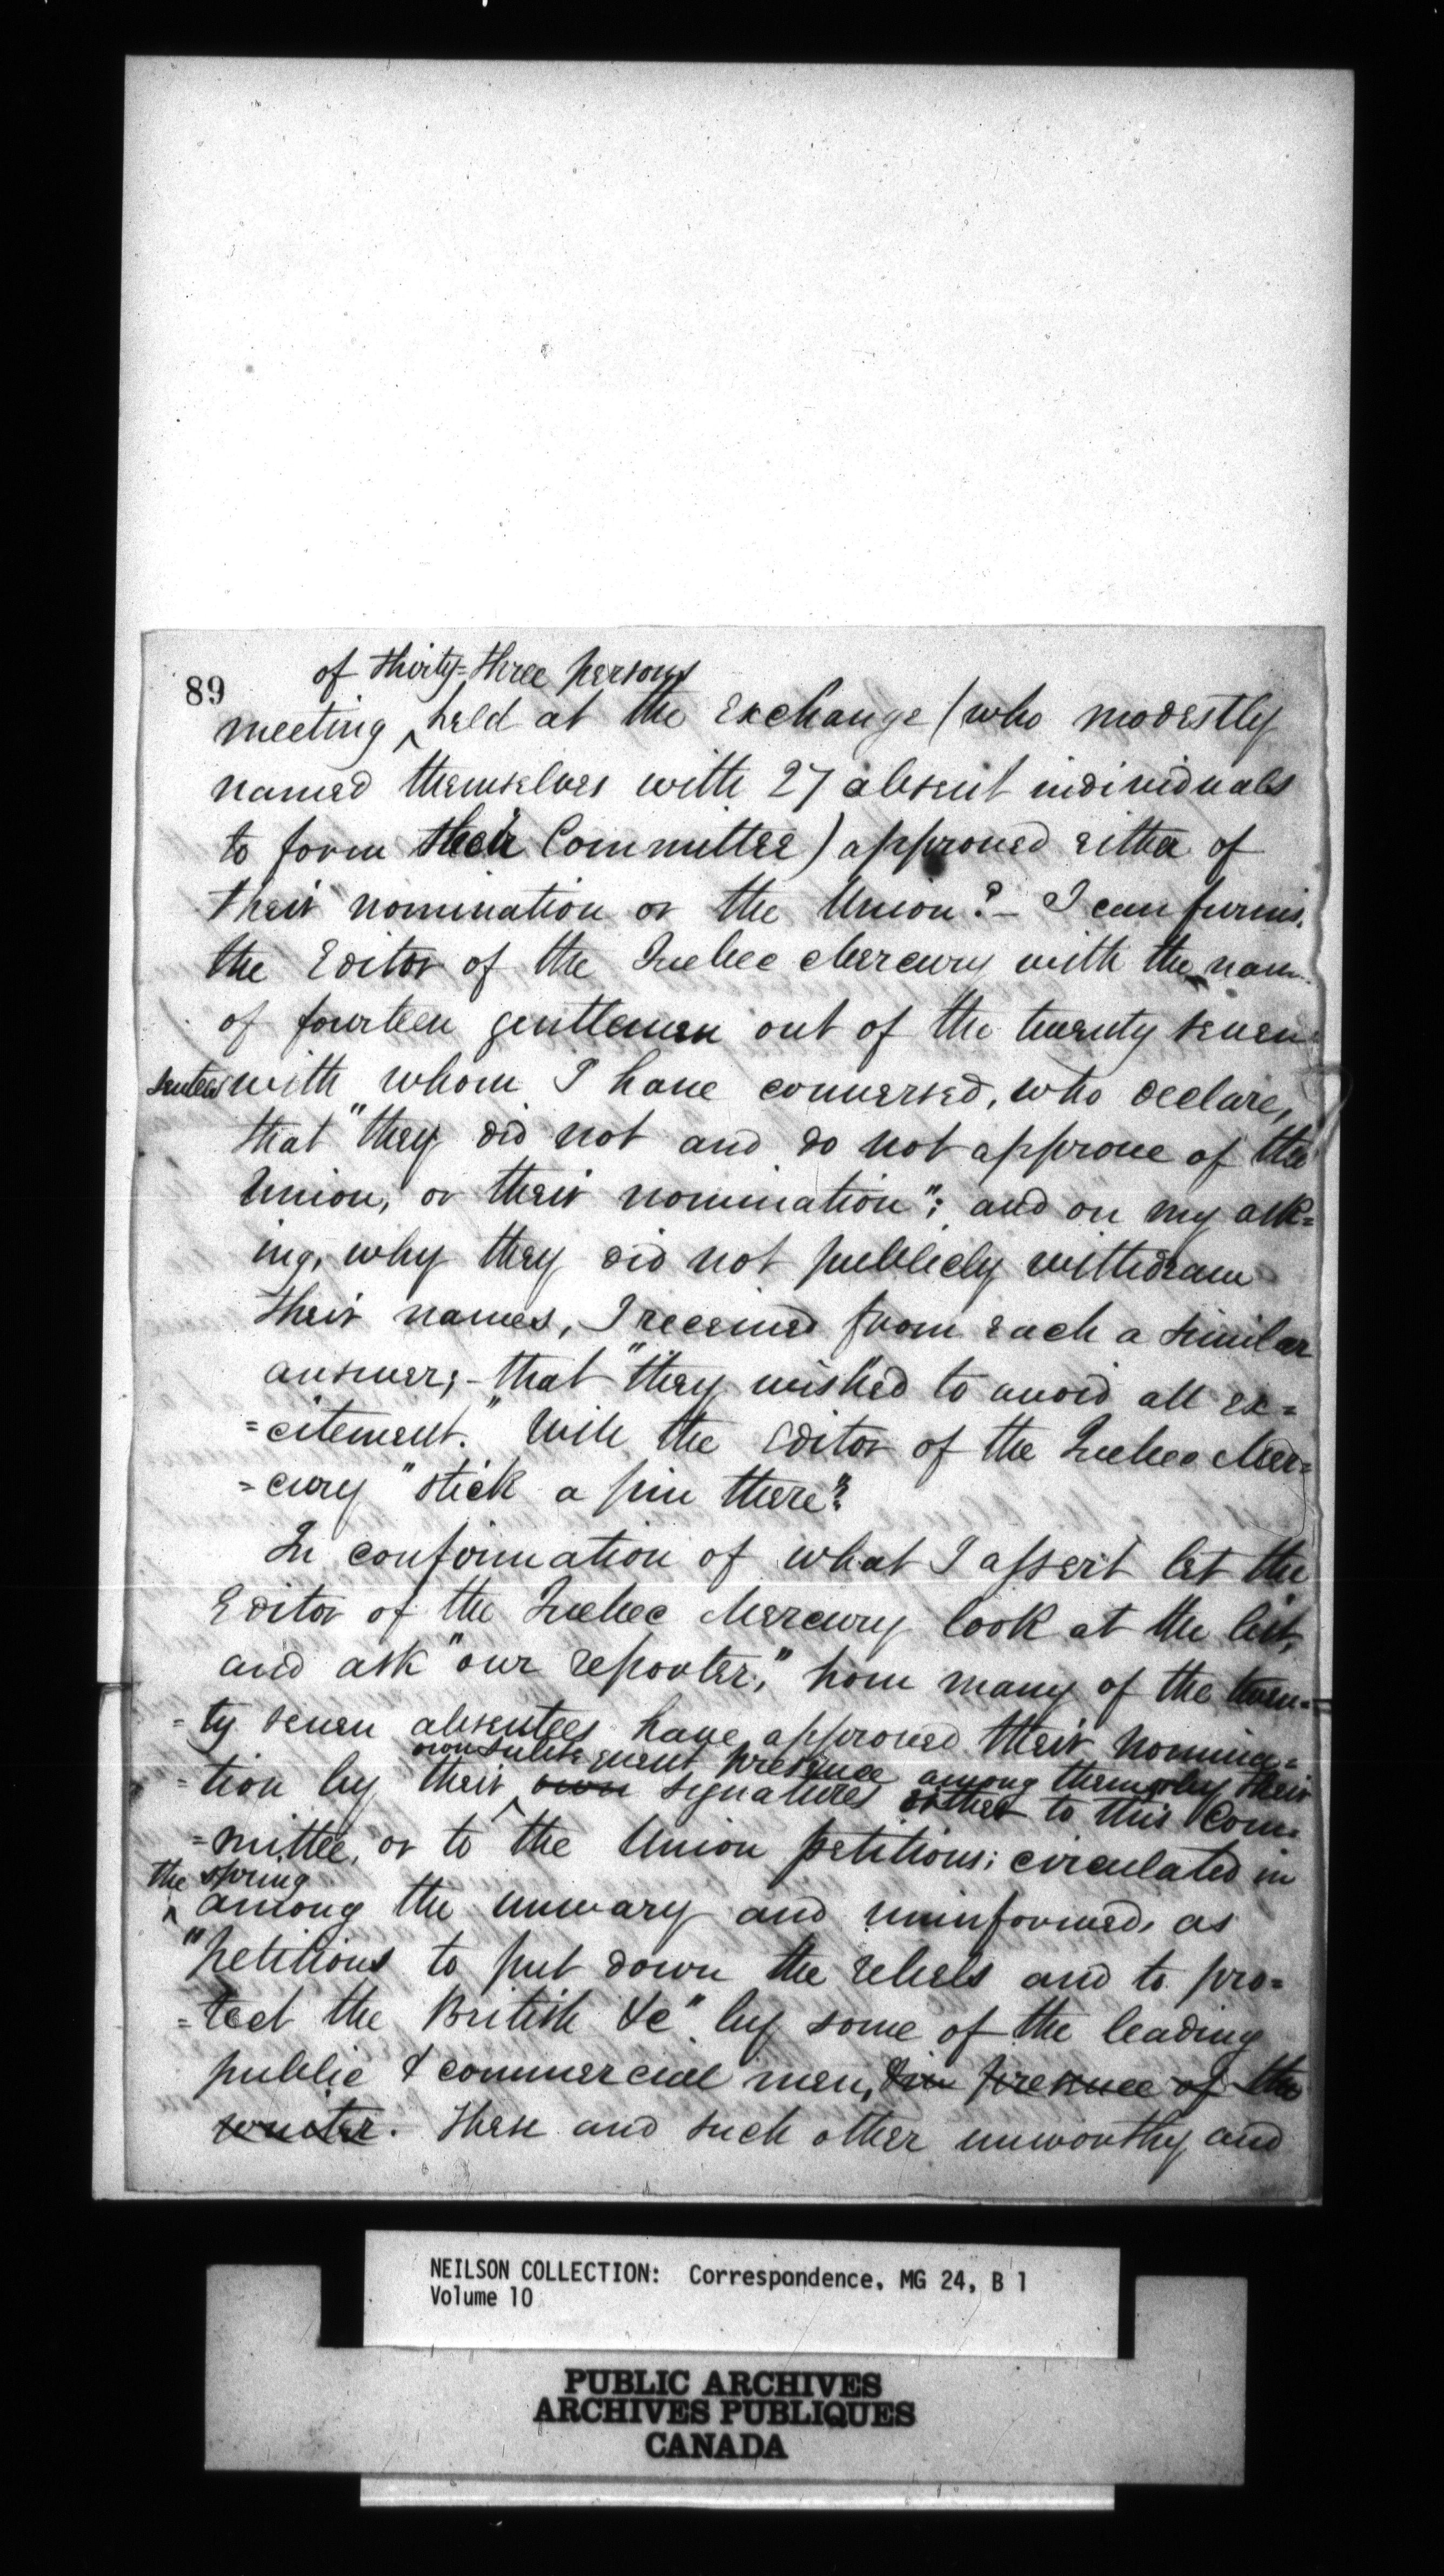 89
of thirty=three persons
meeting ^ held at the Exchange (who modestly
named themselves with 27 absent individuals
to form their Committee) approved either of
their nomination or the Union? – I can furnis
the Editor of the Quebec Mercury with the nam
of fourteen gentlemen out of the twenty seven
with whom I have conversed, who declare,
that "they did not and do not approve of the
Union, or their nomination"; and on my ask=
ing, why they did not publicly withdraw
their names, I received from each a similar
answer; – that "they wished to avoid all ex=
=citement." Will the Editor of the Quebec Mer=
=cury "stick a pin there"?
In confirmation of what I assert let the
Editor of the Quebec Mercury look at the list,
and ask "our reporter," how many of the twen=
=ty seven absentees have approved their nomina=
own subsequent presence among them, or by their
=tion by their ^ own signatures either to this Com=
=mittee, or to the Union petitions; circulated in
the spring
^ among the unwary and uninformed, as
"petitions to put down the rebels and to pro=
=tect the British &c" by some of the leading
public & commercial men, & in presence of the
writer. These and such other unworthy and
NEILSON COLLECTION: Correspondence, MG 24, B 1
Volume 10
PUBLIC ARCHIVES
ARCHIVES PUBLIQUES
CANADA